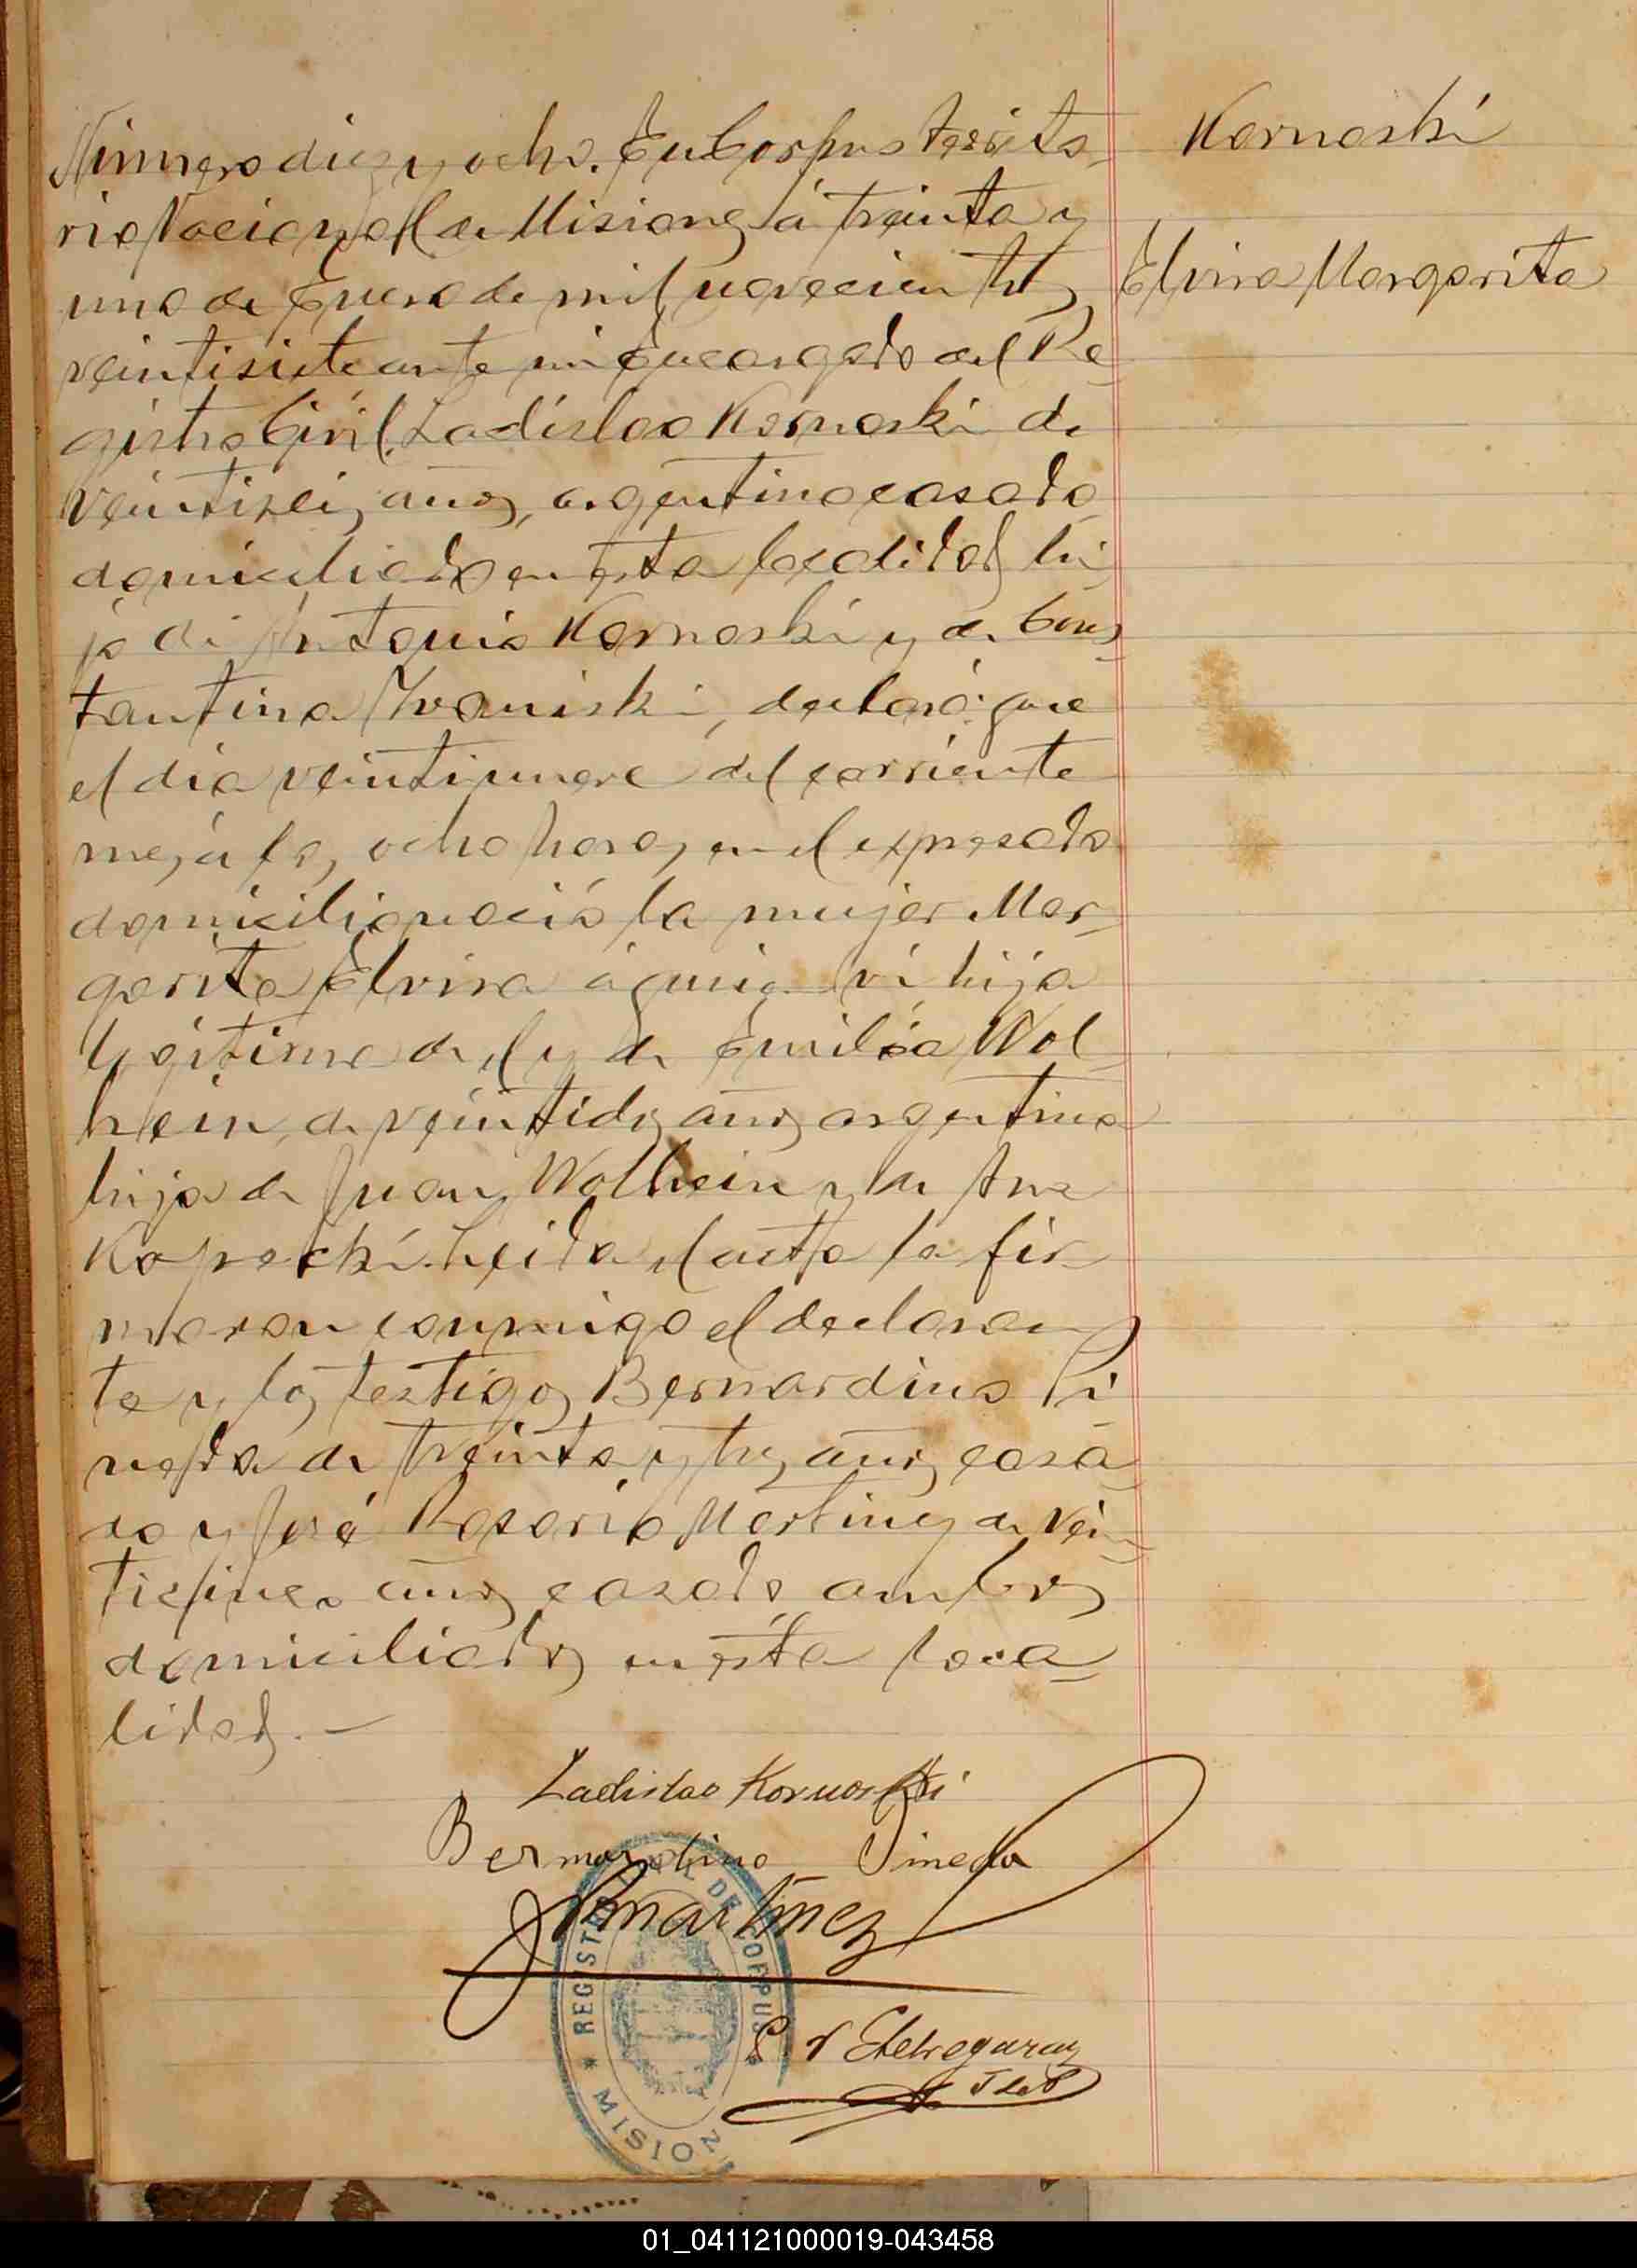 Número diez y ocho. En Corpus Territo-
rio Nacional de Misiones á treinta y
uno de Enero de mil novecientos
veintisiete ante mi Encargado del Re-
gistro Civil, Ladislao Kornoski de
veintiseis años, argentino casado
domiciliado en esta localidad hi-
jo de Antonio Kornoski y de Cons-
tantina Ivaniski, declaró: que
el día veintinueve del corriente
mes, á las ocho horas, en el expresado
domicilio nació la mujer Mar-
garita Elvira á quien ví hija
legítima de el y de Emilia Wol-
hein, de veintidos años argentina
hija de Juan Wolhein y de Ana
Kopeski. Leida el acta la fir-
maron conmigo el declaran-
te y los testigos Bernardino Pi-
neda de treinta y tres años, casa-
do y José Rosario Martinez de vein-
ticinco años casado ambos
domiciliados en esta loca-
lidad. —
Kornoski
Elvira Margarita
Ladislao Kornoski
Bernardino Pineda
Martinez
Etchegaray
REGISTRO CIVIL DE CORPUS
* MISIONES
01_041121000019-043458